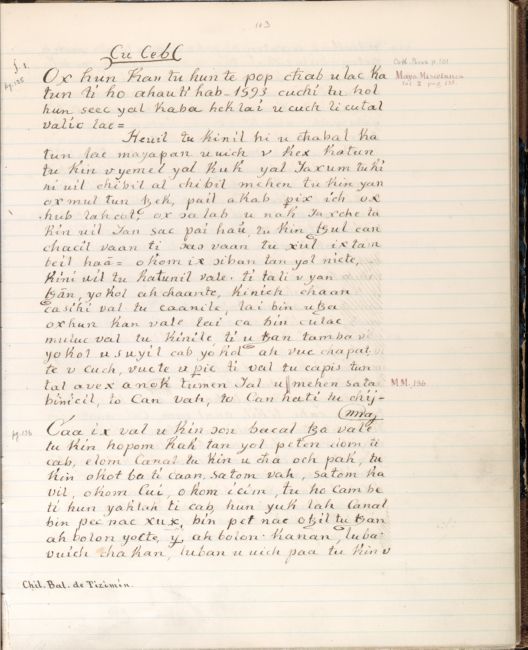 103
Cu Ceb(
f. 1.
Cod. Perez p. 101.
Ox hun Kan tu hun te pop chab u lac Ka
pg. 135
Maya Miscelanea
tun ti ho ahau ti hab - 1593 cuchi tu hol
vol. 2 pag. 135.
hun seec yal Kaba heklai u cuch licutal
valic lae =
Heuil tu Kinil hi u chabal Ka
tun lae mayapan u uich v Kex Katun
tu Kin v yemel yal Kuk yal Yaxum tu Ki
ni uil chibil al chibil mehen tu Kin yan
ox mul tun ꜩek, pail akab pix ich ox
hub lahcol, ox salab u nak Yaxche ta
Kin uil Yan sac pai hau, tu Kin ꜩul can
chacil vaan ti sas vaan tu xul ix tan
beil haa = okom ix siban tan yol niete,
Kini uil tu Katunil vale. ti tali v yan
ꜩan, yokol ah chaante, Kinich chaan
casihi val tu caanile, lai bin uꜩa
oxhun Kan vale lai ca bin culac
muluc val tu Kinile, ti u ꜩan tamba v
yokol u suyil cab yokol ah vuc chapat,
te v cuch, vucte u pic ti val tu capis tun
tal avex a nok tumen Yal u mehen sata
M.M. 136
bimcil, to Can vah, to Can hati tu chij-
(may
Caa ix val u Kin xon bacal ꜩa vale
pg. 136
tu Kin hopom Kak tan yol peten hom ti
cab, elom Canal tu Kin u cha och pak, tu
Kin okot ba ti caan, satom vah, satom ka
vil, okom Cui, okom icim, tu ho cam be
ti hun yaklah ti cab, hun yuk lah Canal
bin pec nac xux, bin pet nac oꜩil tu ꜩan
ah bolon yocte, y ah bolon Kanan, luba
vuich chakan, luban u uich paa tu Kin v
Chil. Bal. de Tizimin.